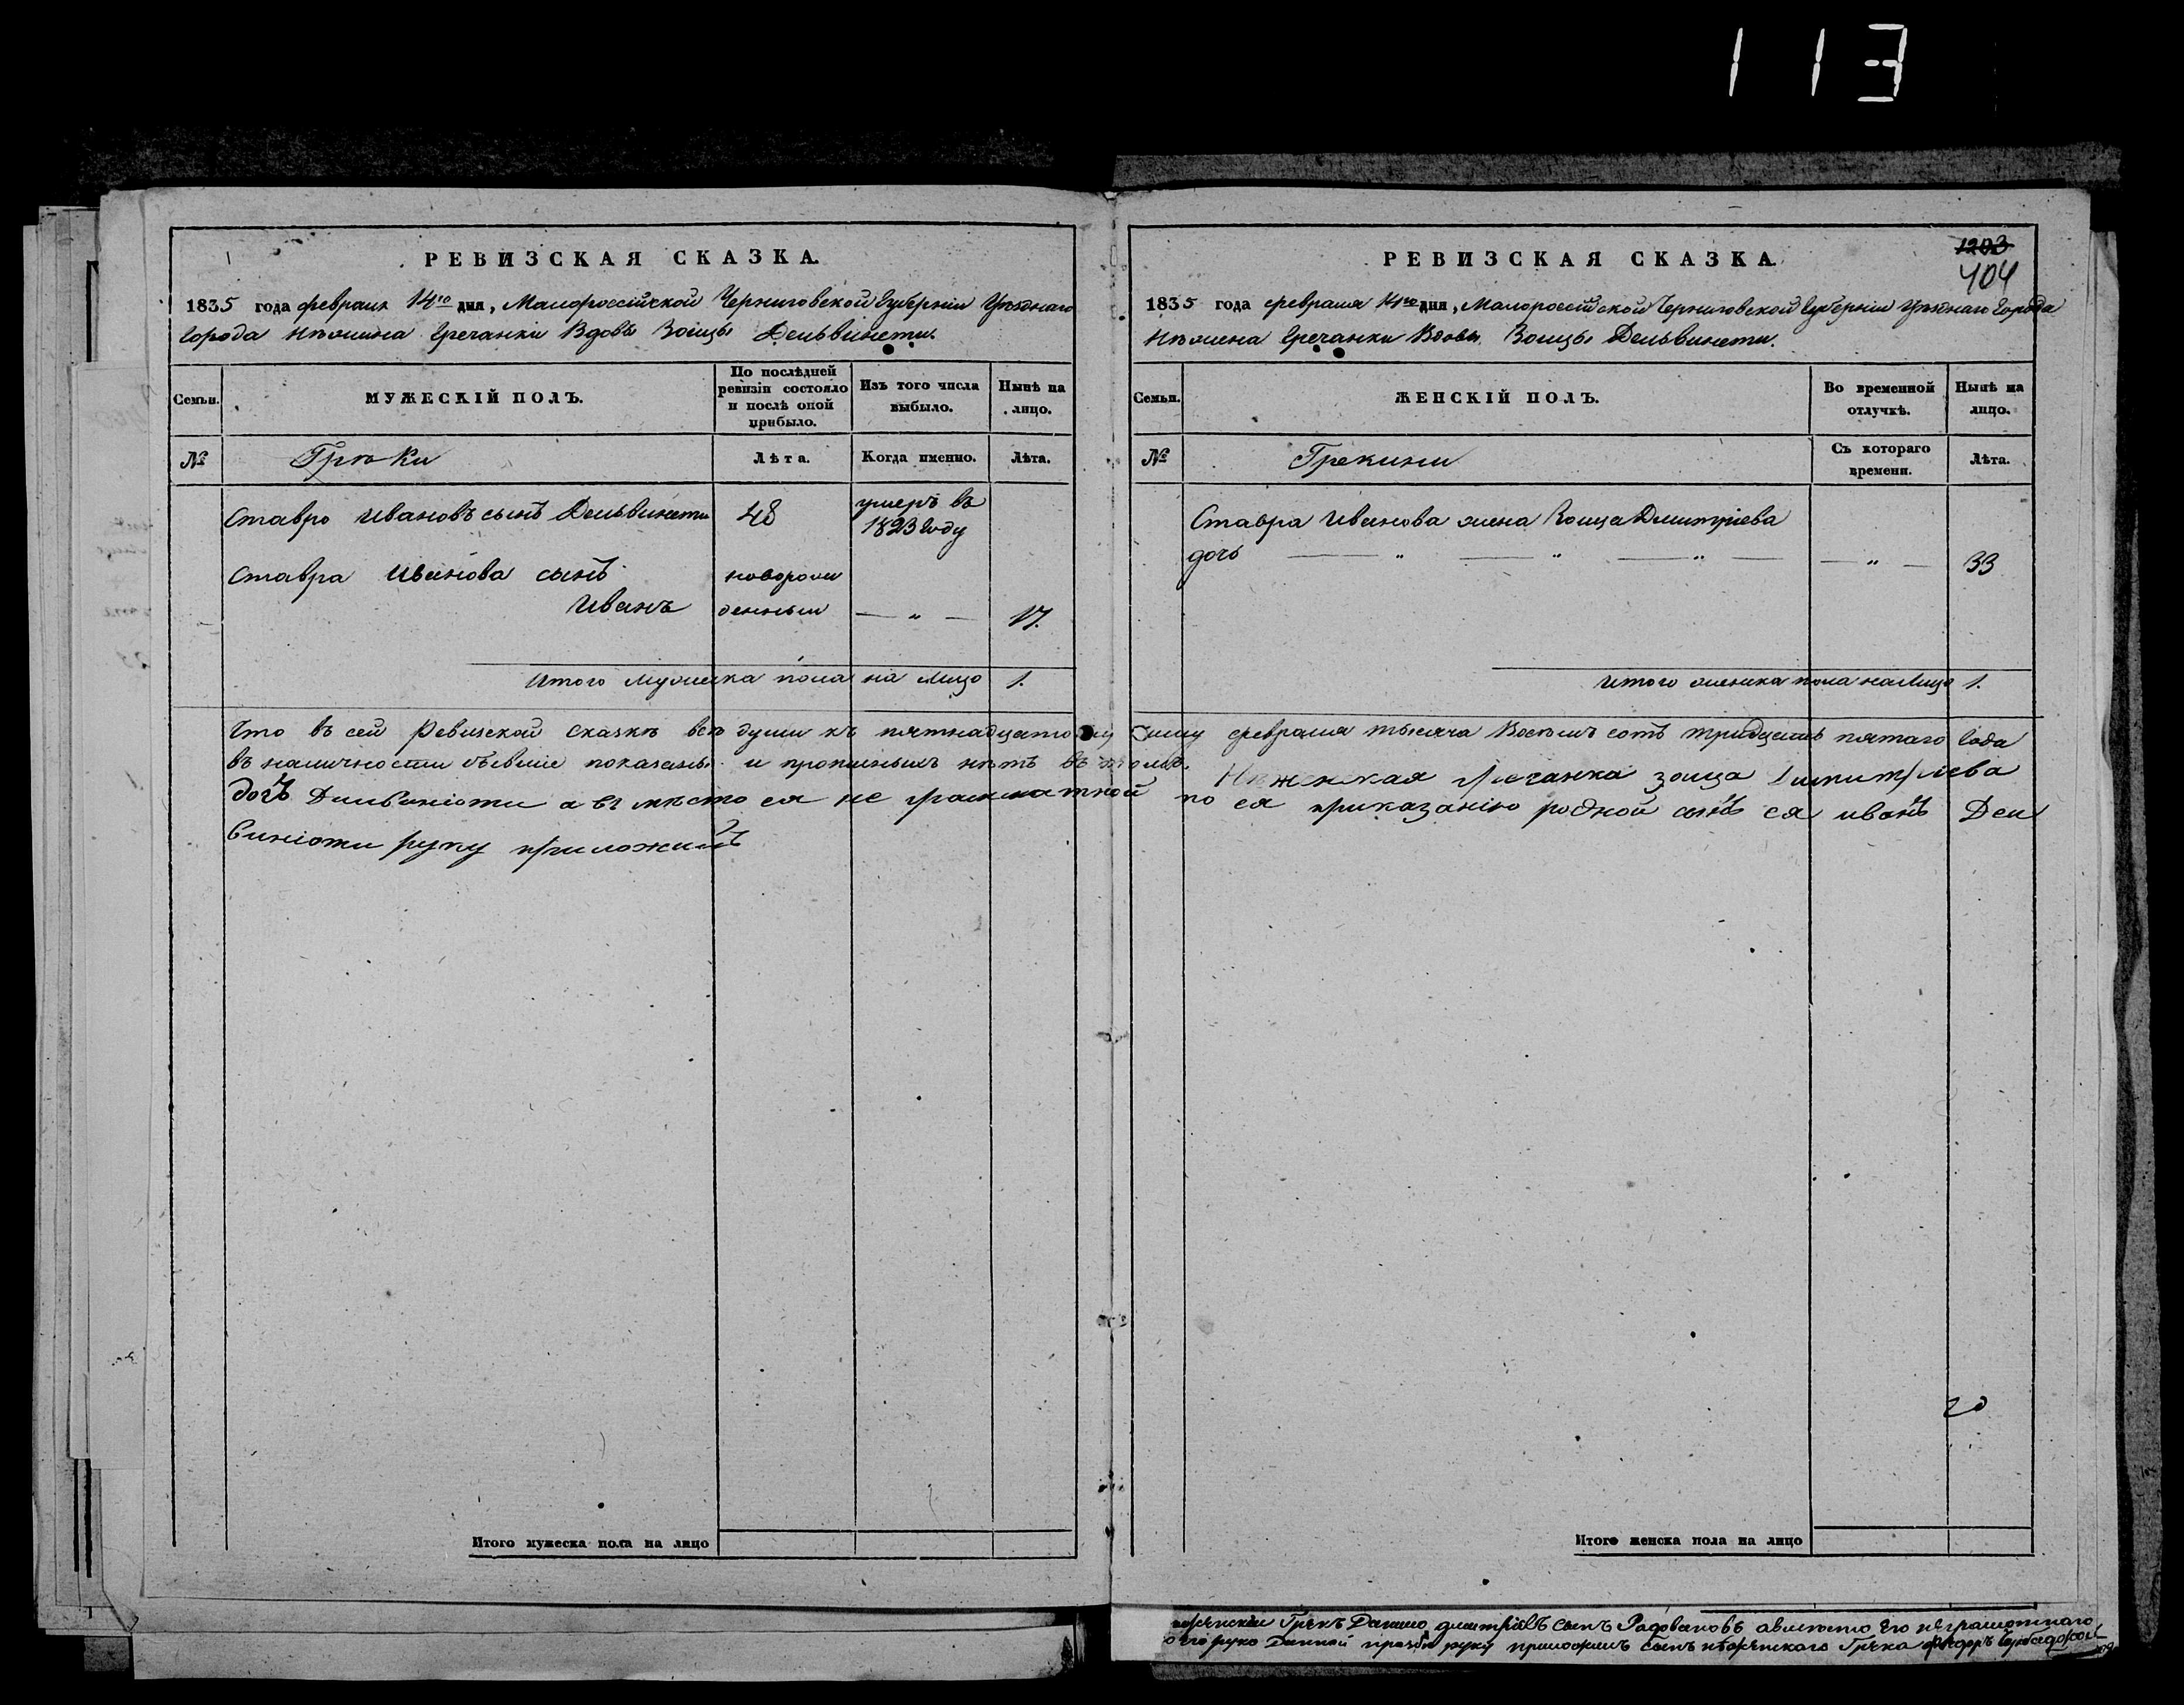 113
РЕВИЗСКАЯ СКАЗКА.
1835 года февраля 14го дня, Малороссійской Черниговской Губерніи Уѣзднаго
Города Нѣжина Гречанки Вдовы Зоицы Дельвинети.
Семьи.
МУЖЕСКІЙ ПОЛЪ.
По послѣдней ревизіи состояло и послѣ оной прибыло.
Изъ того числа выбыло.
Нынѣ на лицо.
№
Грѣки
Лѣта.
Когда именно.
Лѣта.
Ставро Ивановъ сынъ Дельвинети 48 умеръ въ
1823 году
Ставра Иванова сынъ новорож
Иванъ денный — „ — 17.
Итого Мужеска пола на Лицо 1.
РЕВИЗСКАЯ СКАЗКА
1203
404
1835 года февраля 14го дня, Малороссійской Черниговской Губерніи Уѣзнаго Города
Нѣжена Гречанки Вдовы Зоицы Дельвинети.
Семьи.
ЖЕНСКІЙ ПОЛЪ.
Во временной отлучкѣ.
Нынѣ на лицо.
№
Грекини
Съ котораго времени.
Лѣта.
Ставра Иванова жена Зоица Дмитріева
дочь — „ — „ — „ — — „ — 33
Итого женска пола на Лицо 1.
Что въ сей Ревизской сказкѣ всѣ души къ пятнадцатому Чи́слу февраля тысяча Восемъ сотъ тридцать пятаго Года
въ наличности бывшіе показаны и прописныхъ нѣтъ въ томъ. Нѣженская Гречанка зоица Димитріева
дочъ Делвиніоти а въ мѣсто ея не граматной по ея приказанію родной сынъ ея иванъ Дел
виніоти руку приложилъ
20
Итого мужеска пола на лицо
Итого женска пола на лицо
Грекъ Данило Дмитріевъ сынъ Радовановъ авместо его неграмотнаго
его руко Данной прозбѣ руку приложилъ сынъ нѣженскаго Грека Федоръ